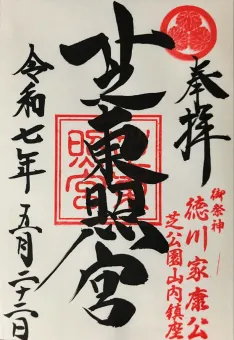 奉拝
御祭神
徳川家康公
芝公園山内鎮座
芝東照宮
令和七年 五月二十二日